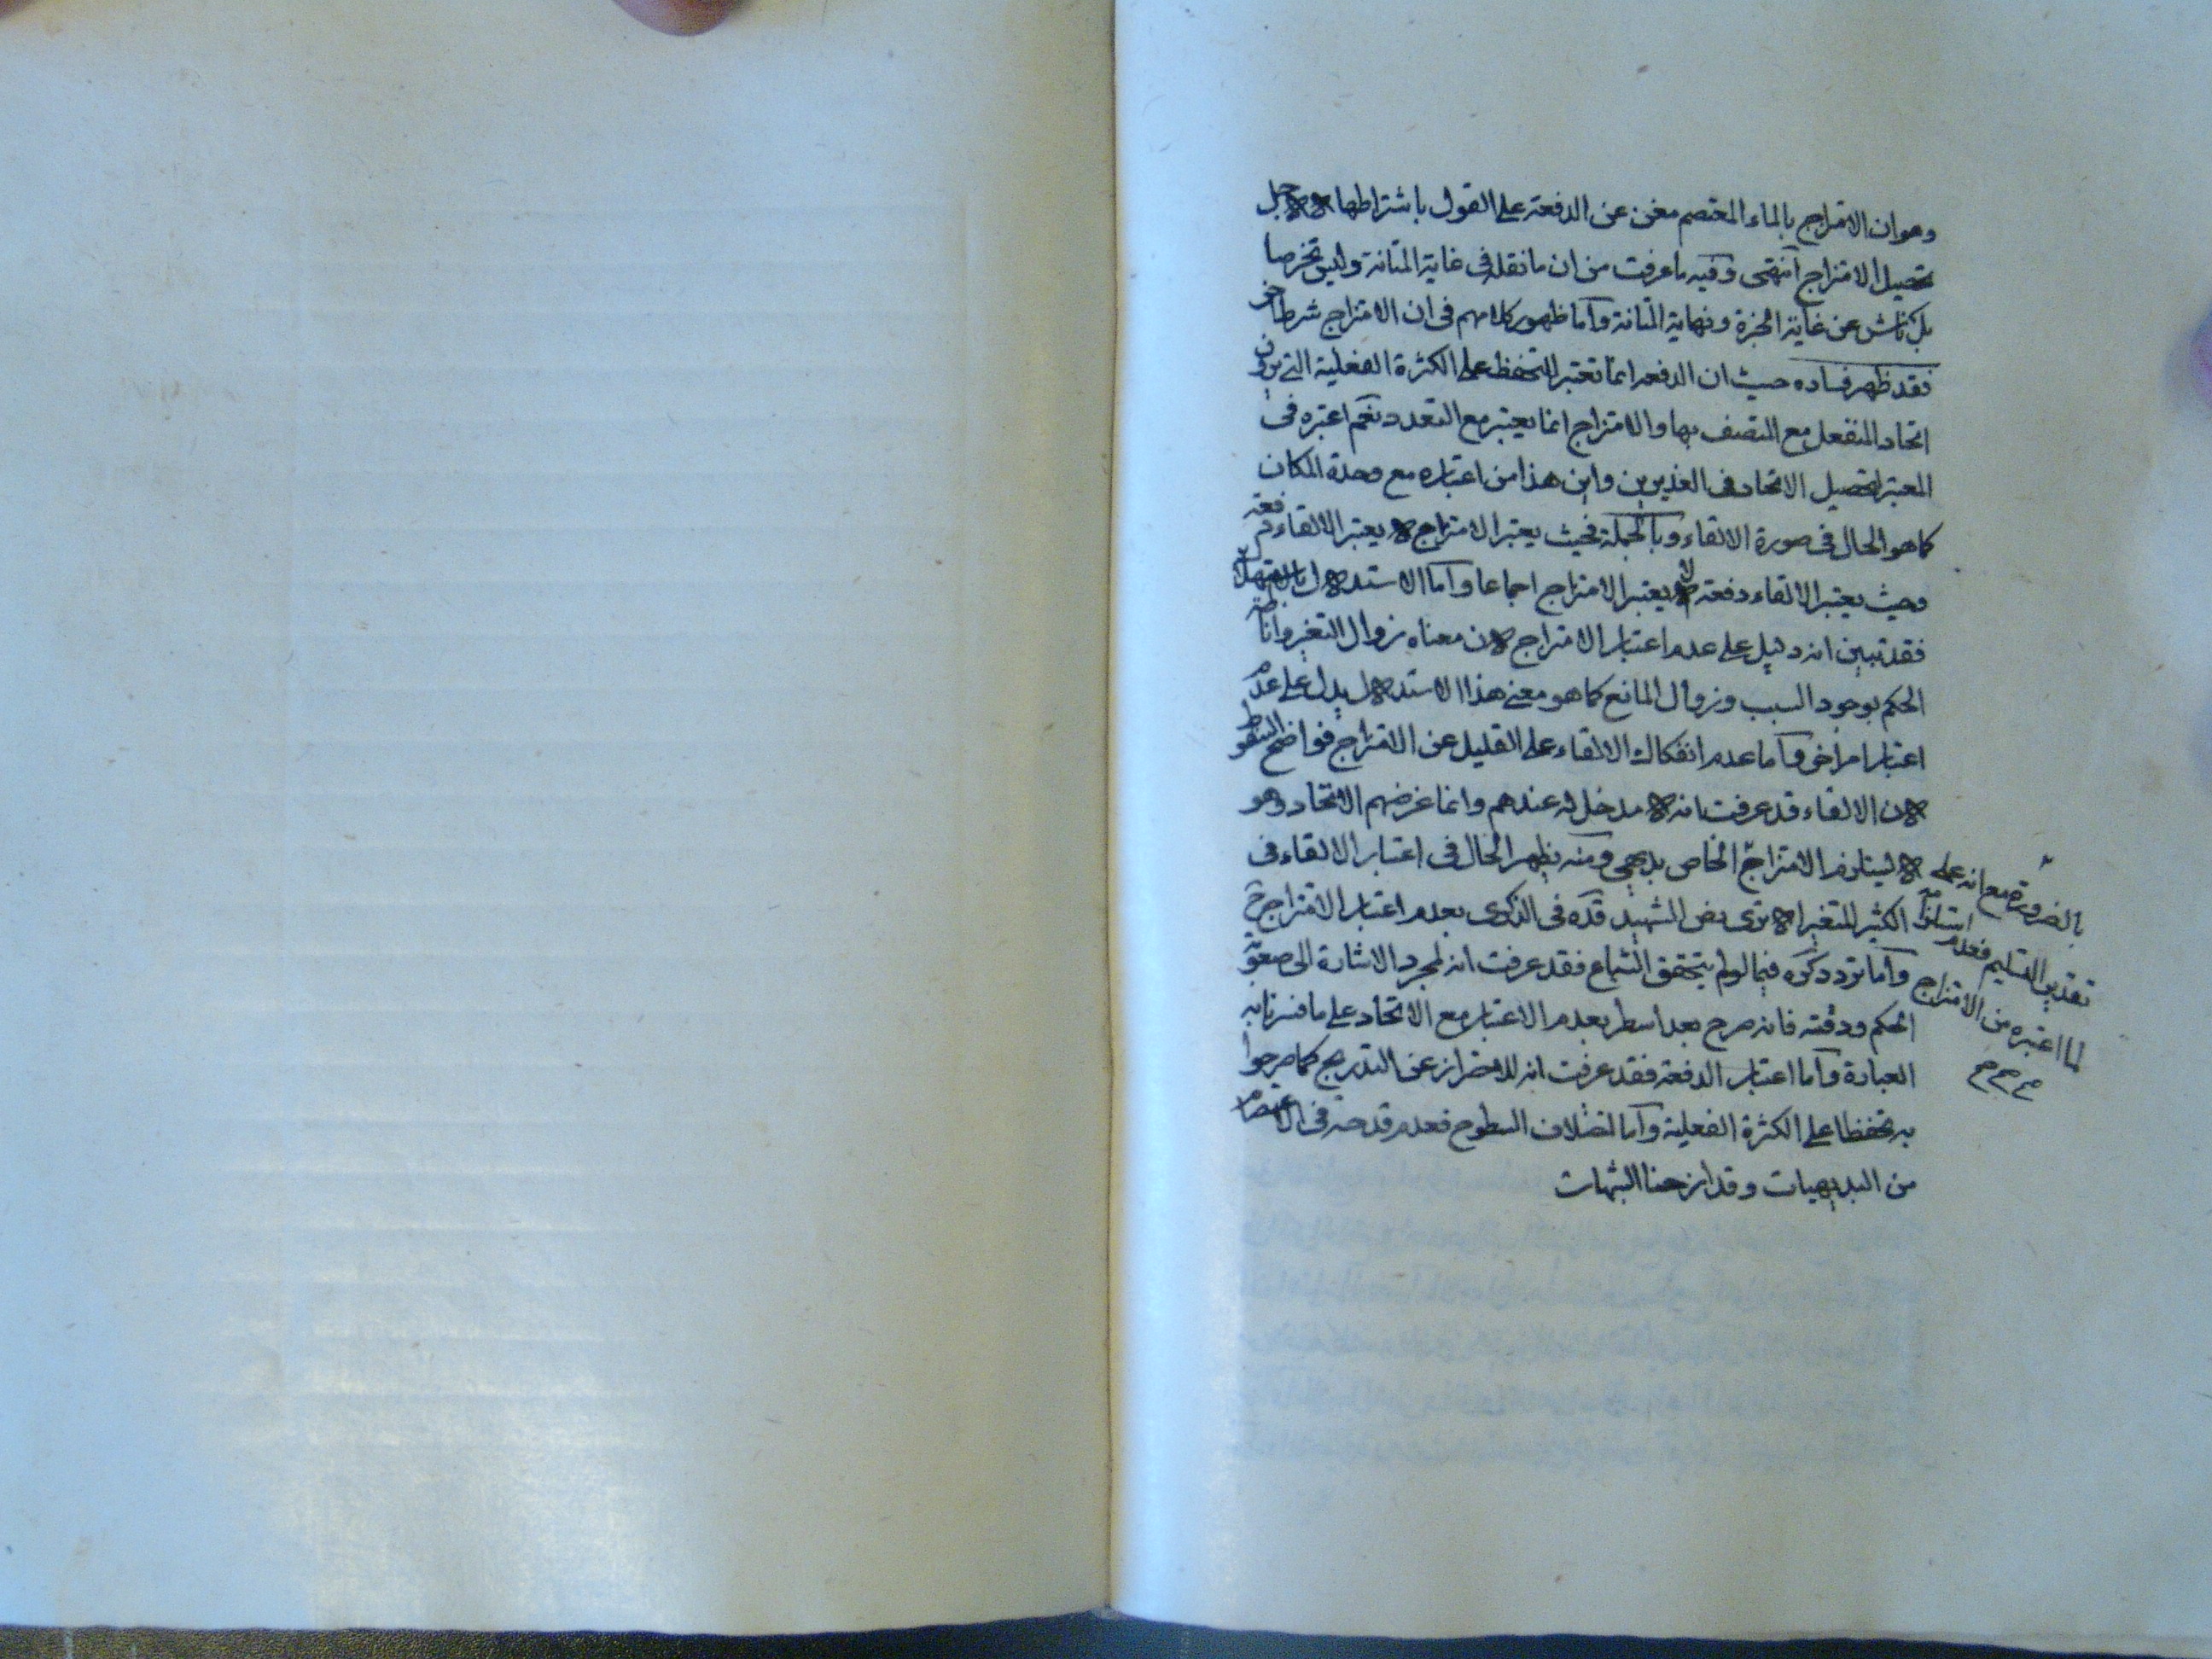 وهو ان الامتزاج بالماء المعتصم مغن عن الدفعة على القول باشتراطها لا لاجل
تحصيل الامتزاج انتهى وفيه ما عرفت من ان ما نقله فى غاية المتانة وليس تخرصا
بل ناش عن غاية الخبرة ونهاية المتانة واما ظهور كلامهم فى ان الامتزاج شرط اخر
فقد ظهر فساده حيث ان الدفعة انما تعتبر للتحفظ على الكثرة الفعلية التى
اتحاد المنفعل مع المتصف بها والامتزاج انما يعتبر مع التعدد نعم اعتبره فى
المعتبر لتحصيل الاتحاد فى الغديرين واين هذا من اعتباره مع وحدة المكان
كما هو الحال فى صورة الالقاء وبالجملة فحيث يعتبر الامتزاج لا يعتبر الالقاء دفعة
وحيث يعتبر الالقاء دفعة لا يعتبر الامتزاج اجماعا واما الاستدلال
فقد تبين انه دليل على عدم اعتبار الامتزاج لان معناه زوال التغير واناطة
الحكم بوجود السبب وزوال المانع كما هو معنى هذا الاستدلال يدل على عدم
اعتبار امر اخر واما عدم انفكاك الالقاء على القليل عن الامتزاج فواضح السقوط
لان الالقاء قد عرفت انه لا مدخل له عندهم وانما غرضهم الاتحاد وهو
لا يستلزم الامتزاج الخاص بديهى ومنه يظهر الحال فى اعتبار الالقاء فى
الكثير المتغير الا ترى نص الشهيد قده فى الذكرى بعدم اعتبار الامتزاج ح
واما تردد كره فيما لو لم يتحقق الشياع فقد عرفت انه لمجرد الاشارة الى صعوبة
الحكم ودقته فانه صرح بعد اسطر بعدم الاعتبار مع الاتحاد على ما فسرنا به
العبارة واما اعتبار الدفعة فقد عرفت انه للاحتراز عن التدريج كما صرحوا
به تحفظا على الكثرة الفعلية واما اختلاف السطوح فعدم قدحه فى الاعتصام
من البديهيات وقد ازحنا الشبهات
بالضرورة مع انه على
تقدير التسليم فعدم استلزامه
لما اعتبره من الامتزاج